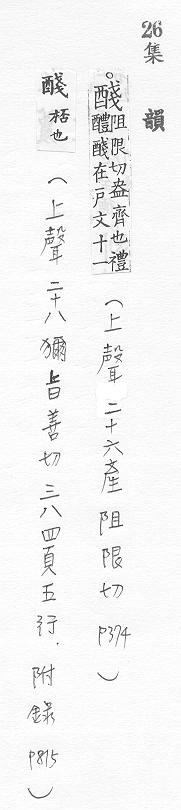 26集 韻
。醆阻限切盎齊也禮
醴醆在戸文十一
（上聲 二十六產 阻限切 P374）
醆 栝也
（上聲 二十八獮 旨善切 三八四頁五行．附錄 P815）